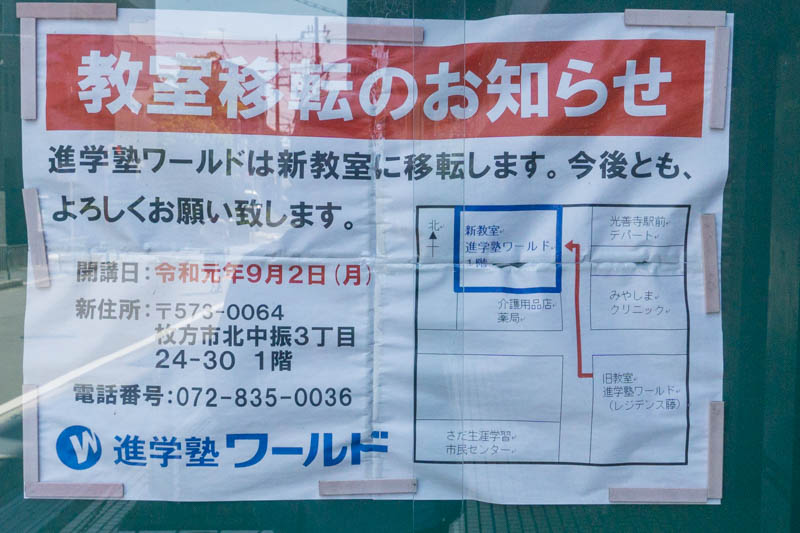 教室移転のお知らせ
進学塾ワールドは新教室に移転します。今後とも、
よろしくお願い致します。
開講日:令和元年9月2日(月)
新住所:〒573-0064
枚方市北中振3丁目
24-30 1階
電話番号:072-835-0036
W 進学塾ワールド
北
新教室
進学塾ワールド
1階
光善寺駅前
デパート
介護用品店
薬局
みやしま
クリニック
旧教室
進学塾ワールド
(レジデンス藤)
さだ生涯学習
市民センター